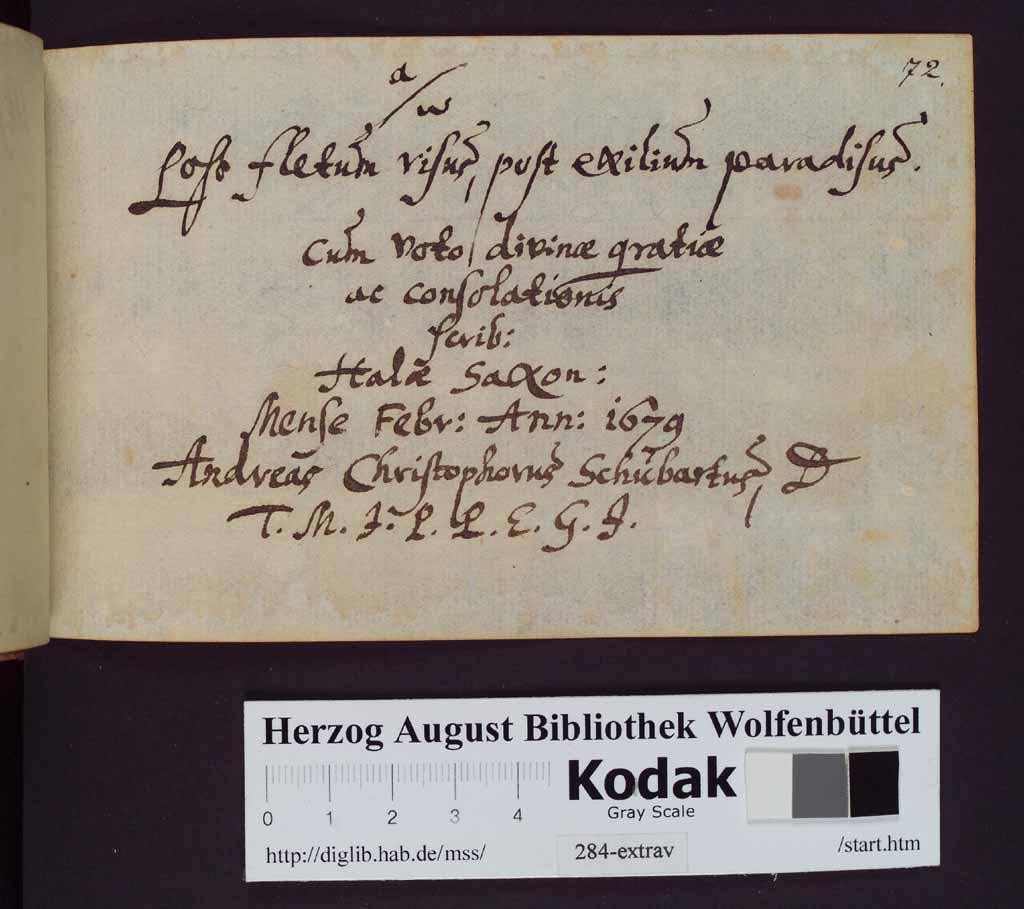 72.
α/ω
Post fletum risus, post exilium paradisus.
Cum voto divinæ gratiæ
ac consolationis
scrib:
Halæ Saxon:
Mense Febr: Ann: 1679
Andreas Christophorus Schubartus, D
T. M. J. P. P. E. G. J.
Herzog August Bibliothek Wolfenbüttel
Kodak
Gray Scale
0 1 2 3 4
http://diglib.hab.de/mss/ 284-extrav /start.htm